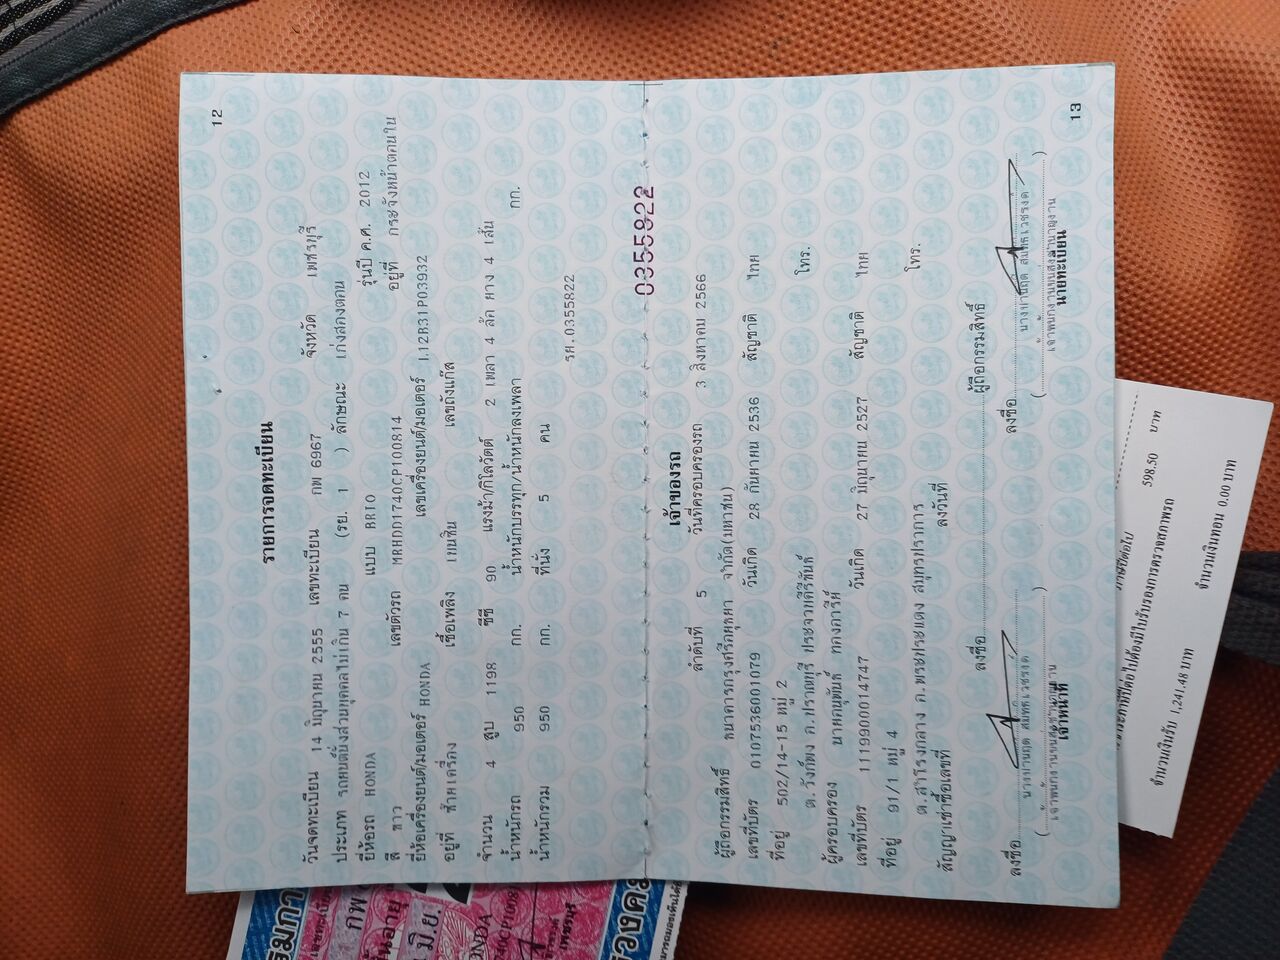 12
รายการจดทะเบียน
วันจดทะเบียน 14 มิถุนายน 2555 เลขทะเบียน กพ 6967 จังหวัด เพชรบุรี
ประเภท รถยนต์นั่งส่วนบุคคลไม่เกิน 7 คน (รย. 1 ) ลักษณะ เก๋งสองตอน
ยี่ห้อรถ HONDA แบบ BRIO รุ่นปี ค.ศ. 2012
สี ขาว เลขตัวรถ MRHDD1740CP100814 อยู่ที่ กระจังหน้าตอนใน
ยี่ห้อเครื่องยนต์/มอเตอร์ HONDA เลขเครื่องยนต์/มอเตอร์ L12B31P03932
อยู่ที่ ท้ายเครื่อง เชื้อเพลิง เบนซิน เลขถังแก๊ส
จำนวน 4 สูบ 1198 ซีซี 90 แรงม้า/กิโลวัตต์ 2 เพลา 4 ล้อ ยาง 4 เส้น
น้ำหนักรถ 950 กก. น้ำหนักบรรทุก/น้ำหนักลงเพลา กก.
น้ำหนักรวม 950 กก. ที่นั่ง 5 คน
รศ.0355822
0355822
เจ้าของรถ
ลำดับที่ 5 วันที่ครอบครองรถ 3 สิงหาคม 2566
ผู้ถือกรรมสิทธิ์ ธนาคารกรุงศรีอยุธยา จำกัด(มหาชน)
เลขที่บัตร 0107536001079 วันเกิด 28 กันยายน 2536 สัญชาติ ไทย
ที่อยู่ 502/14-15 หมู่ 2 โทร.
ต.วังก์พง อ.ปราณบุรี ประจวบคีรีขันธ์
ผู้ครอบครอง นายภนุพันธ์ ทองภารีย์
เลขที่บัตร 1119900014747 วันเกิด 27 มิถุนายน 2527 สัญชาติ ไทย
ที่อยู่ 91/1 หมู่ 4 โทร.
ต.สำโรงกลาง อ.พระประแดง สมุทรปราการ
สัญญาเช่าซื้อเลขที่ ลงวันที่
ลงชื่อ ผู้ถือกรรมสิทธิ์
ลงชื่อ ลงชื่อ
เจ้าหน้าที่ นายทะเบียน
13
598.50 บาท
จำนวนเงินรับ 1,241.48 บาท จำนวนเงินทอน 0.00 บาท
กพ
มิ.ย.
เพชรบุรี